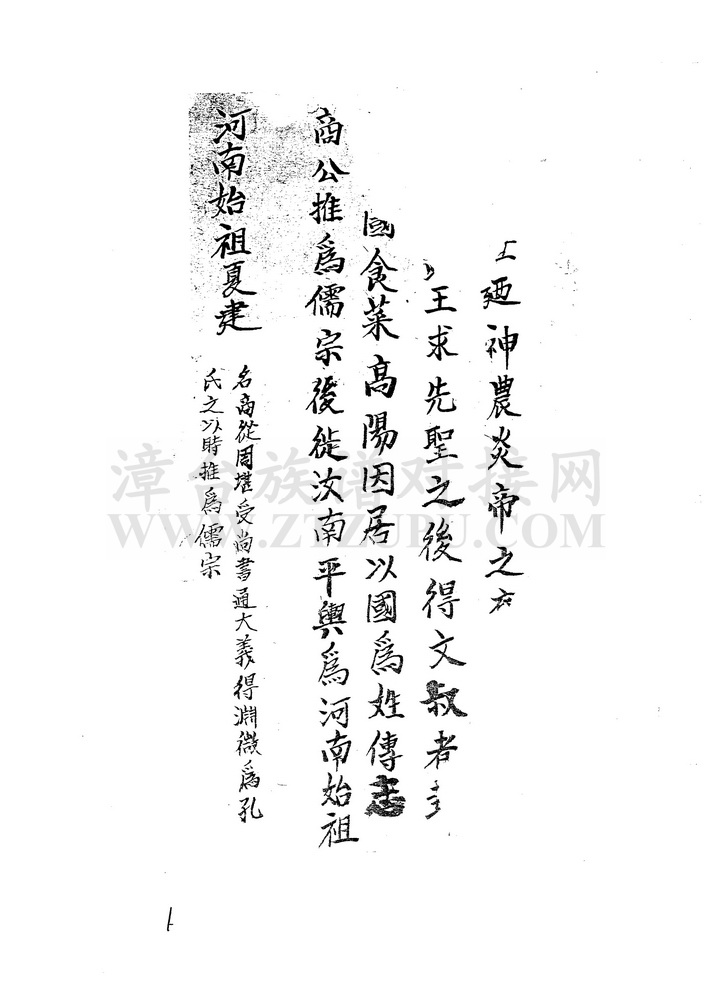 廼神農炎帝之
王求先聖之後得文叔者
國食菜高陽因居以國為姓傳
商公推為儒宗後徙汝南平輿為河南始祖
河南始祖夏建
名商從周堪受尚書通大義得淵微為孔
氏之以時推為儒宗
漳台族谱对接网
WWW.ZTZUPU.COM
1